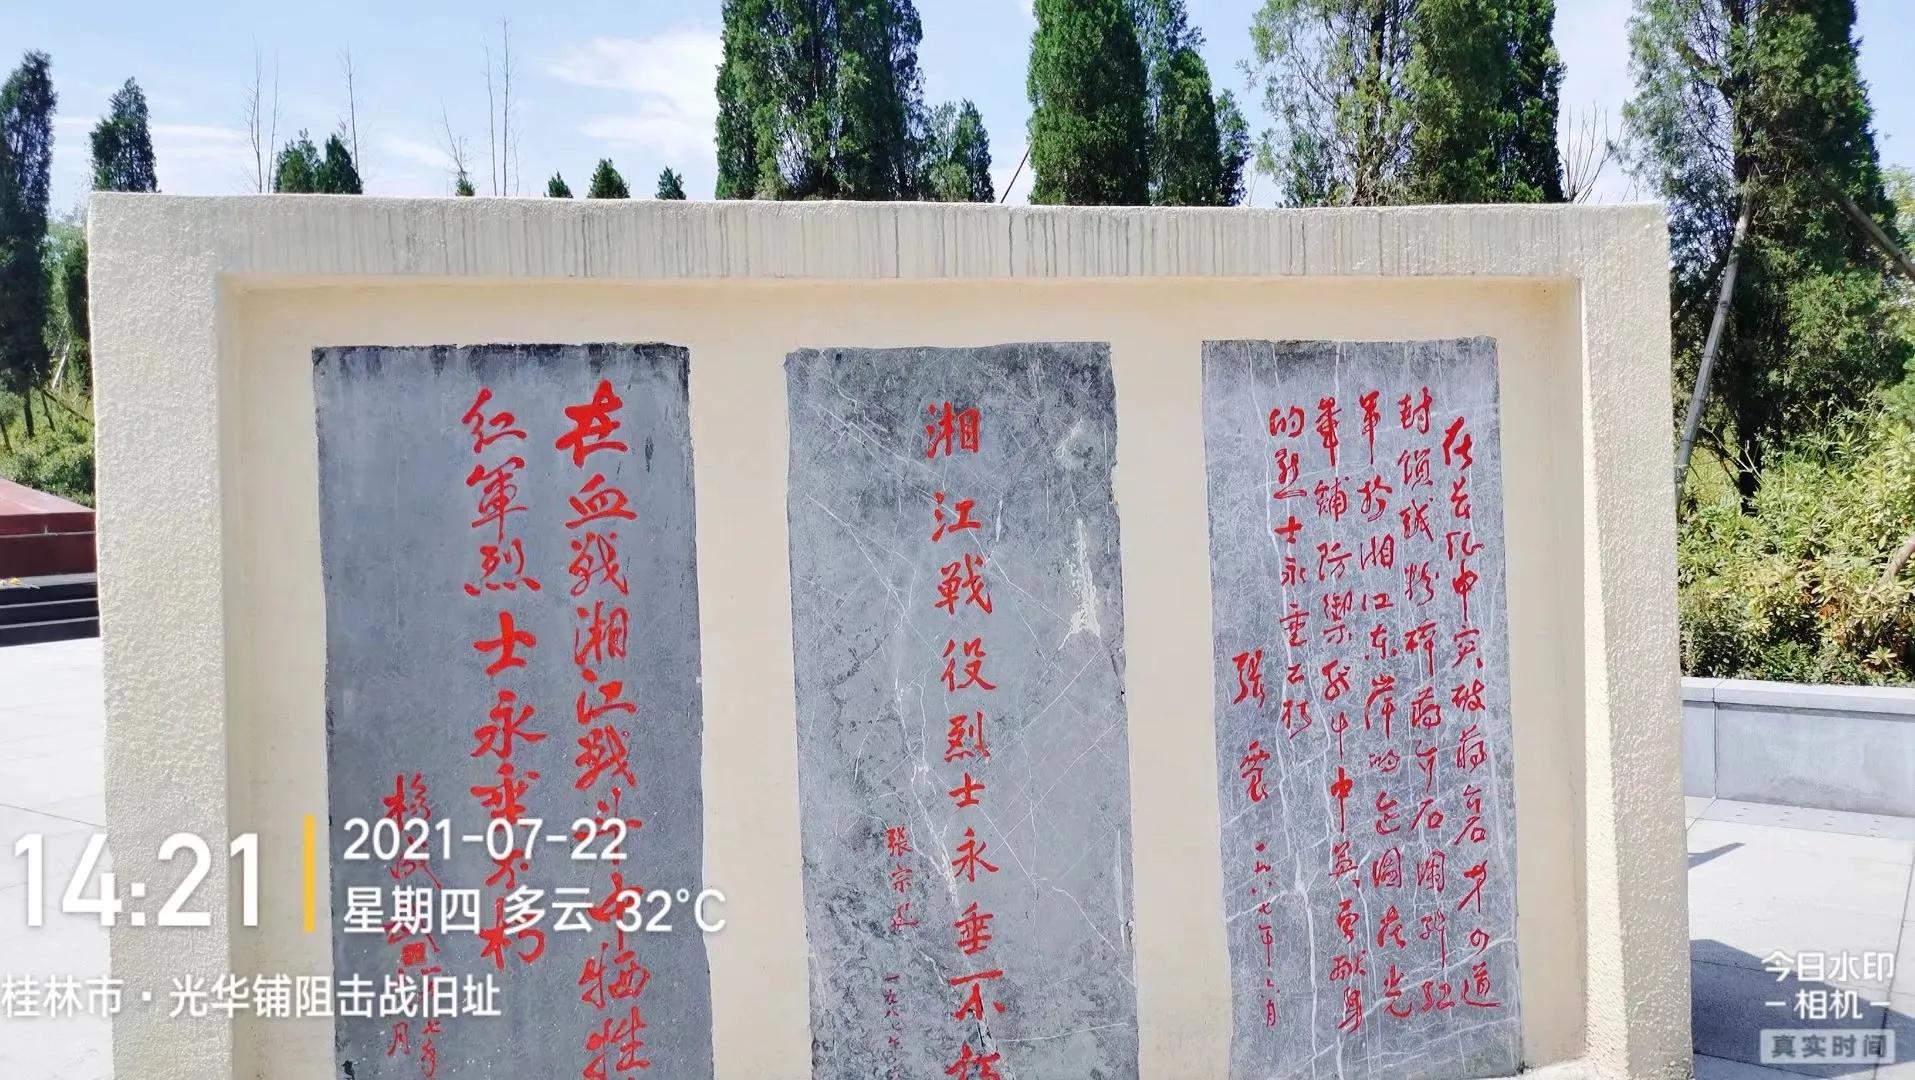 在兴全灌中突破蒋介石第四道
封锁线粉碎蒋介石围歼红
军于湘江东岸的企图在光
华铺防御战斗中英勇献身
的烈士永垂不朽
张震
一九八七年七月
湘江战役烈士永垂不朽
张宗逊
在血战湘江战斗中牺牲
红軍烈士永垂不朽
14:21
2021-07-22
星期四 多云 32°C
桂林市·光华铺阻击战旧址
今日水印
相机
真实时间